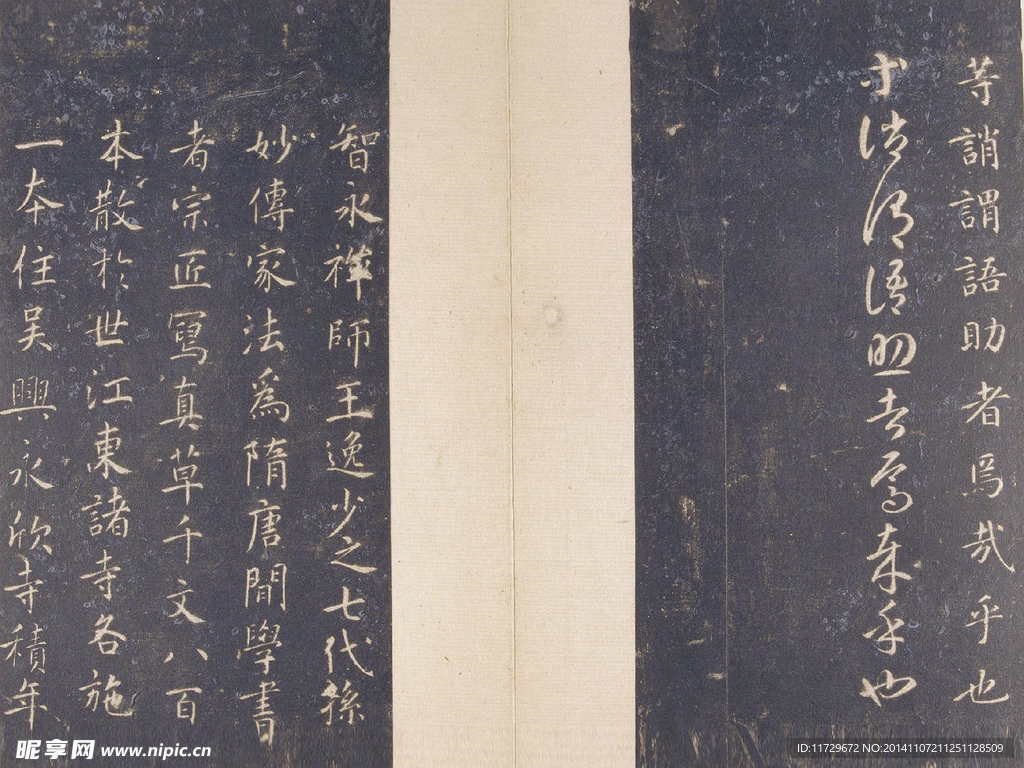 等誚謂語助者焉哉乎也
等誚謂語助者焉哉乎也
智永禅師王逸少之七代孫
妙傳家法為隋唐間學書
者宗匠寫真草千文八百
本散於世江東諸寺各施
一本住吴興永欣寺積年
昵享网 www.nipic.cn
ID:11729672 NO:20141107211251128509